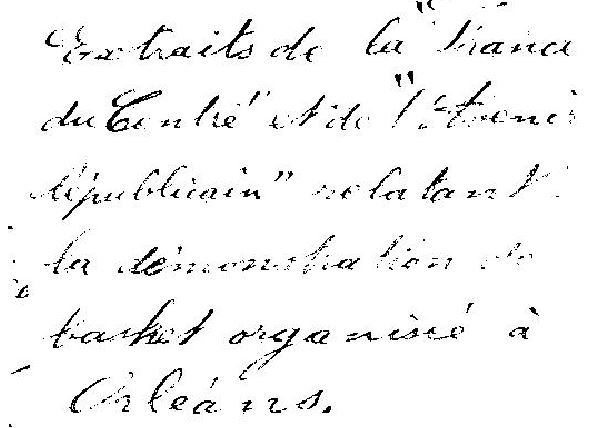 Extraits de la "France
du Centre" et de "l'Avenir
républicain" relatant
la démonstration de
basket organisé à
Orléans.